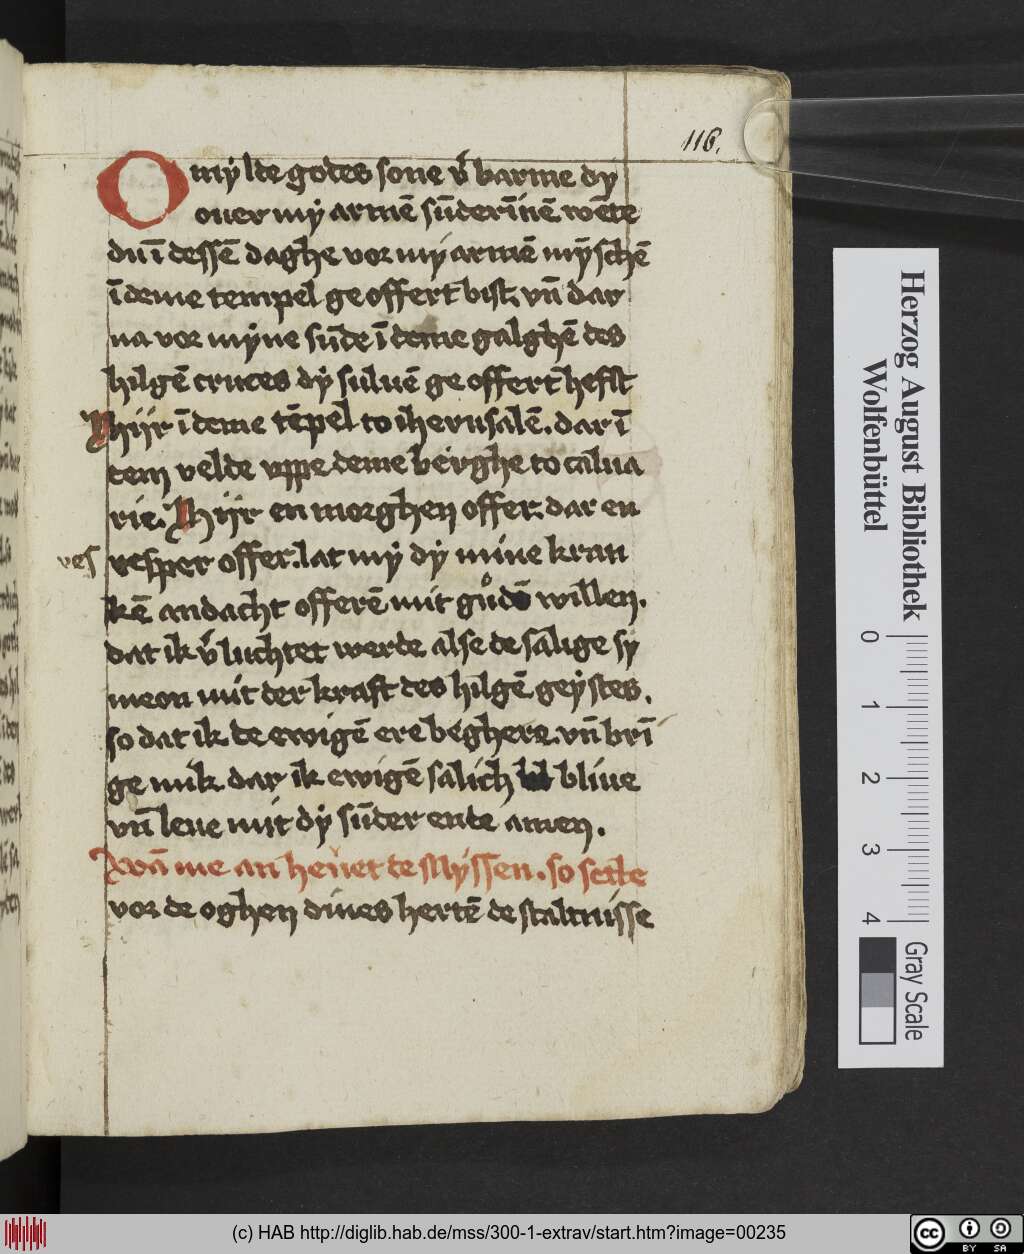 116.
O mylde godes sone v̄barme dy
ouer my armē sūderīnē wēte
du ī dessē daghe vor my armē mȳschē
ī deme tempel ge offert bist, vn̄ dar
na vor myne sūde ī deme galghē des
hilgē cruces dy suluē ge offert hefst
Hiir ī deme tēpel to iherusalē. dar ī
dem velde vppe deme berghe to calua
rie. Hiir en morghen offer. dar en
ves vesper offer. lat my dy mine kran
kē andacht offerē mit gůdē willen.
dat ik v̄luchtet werde alse de salige sy
meon mit der kraft des hilgē geystes.
so dat ik de ewigē ere beghere. vn̄ brī
ge mik dar ik ewigē salich bliue
vn̄ leue mit dy sūder ende amen.
Wā me an heuet de Myssen. so sette
vor de oghen dines hertē de staltnisse
Herzog August Bibliothek
Wolfenbüttel
0 1 2 3 4
Gray Scale
(c) HAB http://diglib.hab.de/mss/300-1-extrav/start.htm?image=00235
cc BY SA